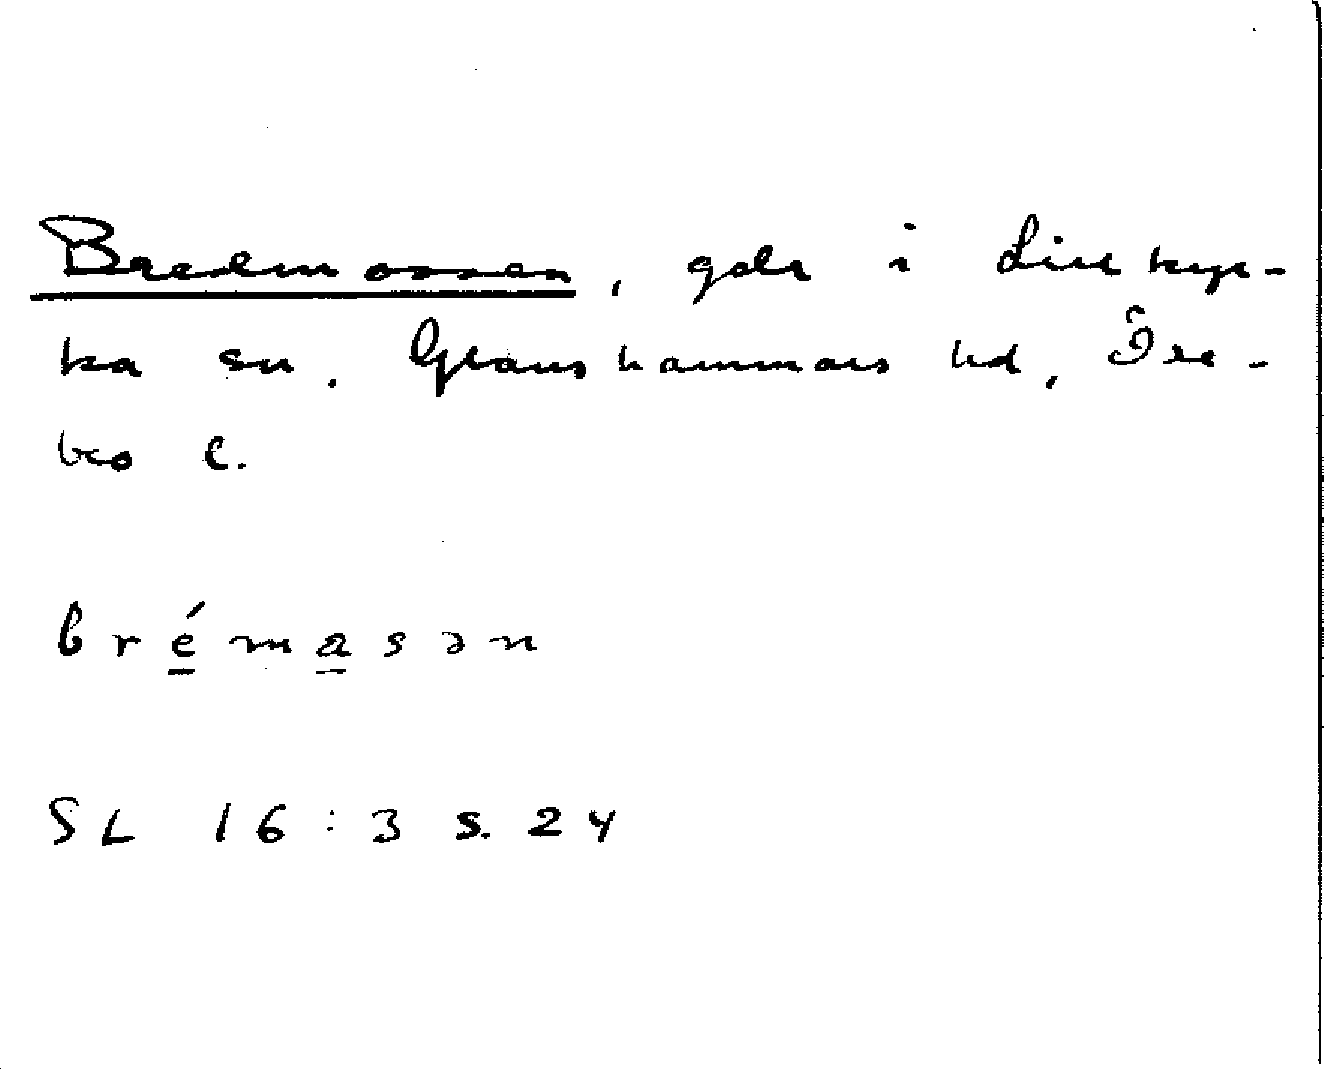 Bredmossen, gdr i Lillkyr-
ka sn. Glanshammars hd, Öre-
bro l.
brémasən
SL 16:3 s. 24